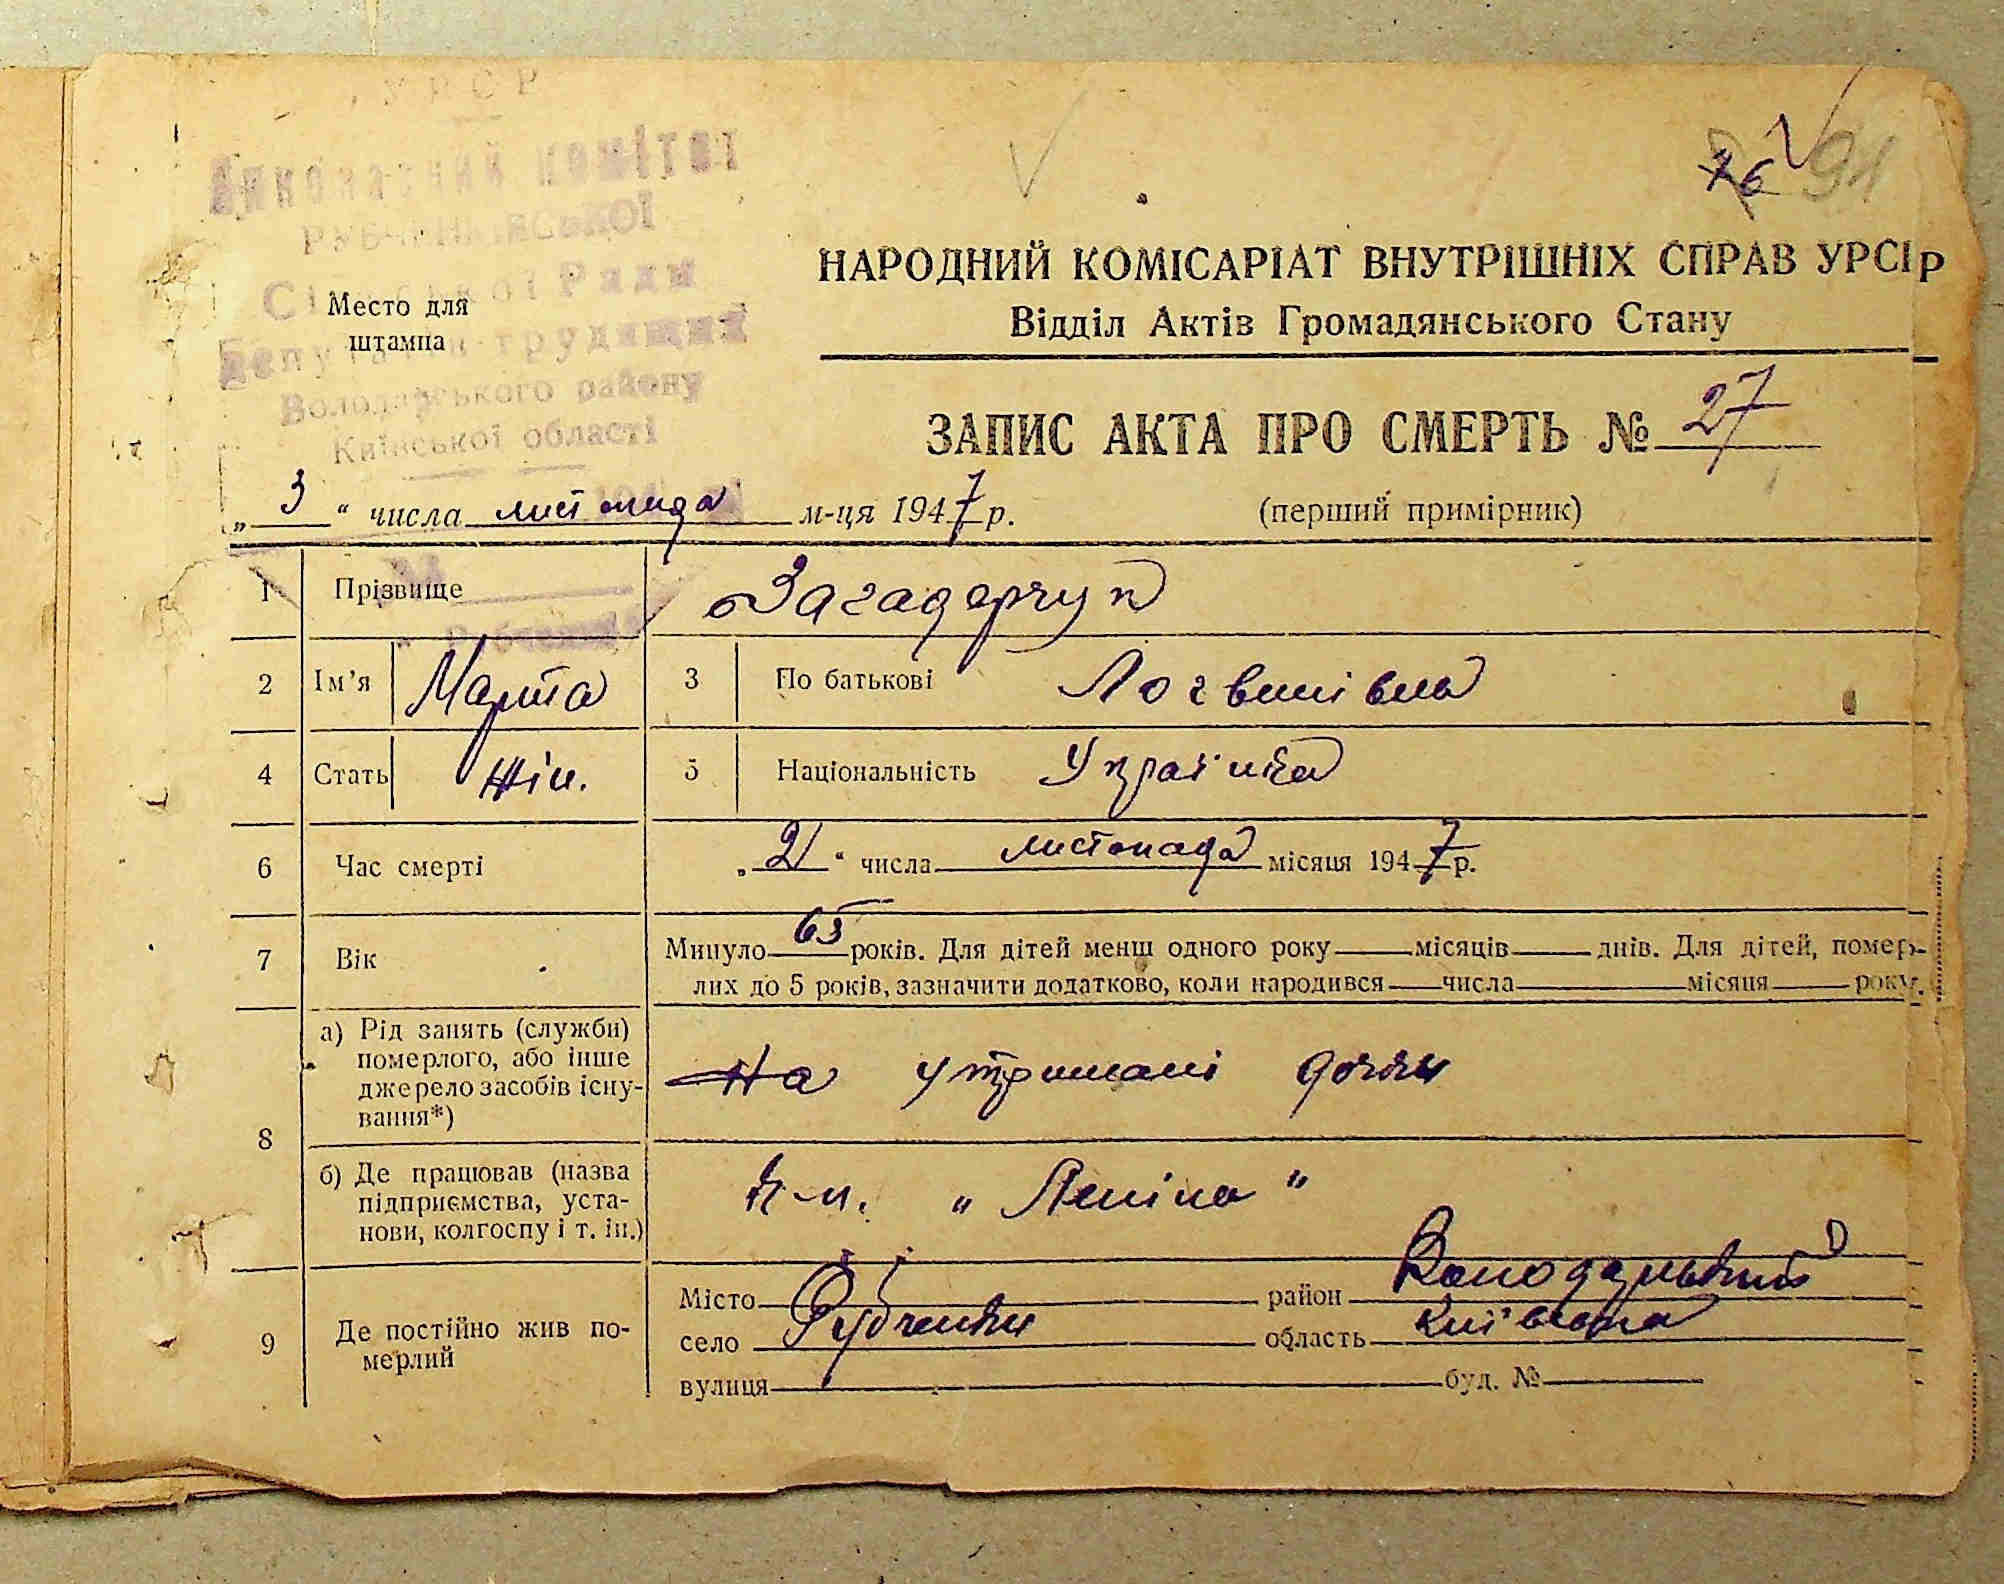 УРСР
Виконавчий комітет
Рубченківської
Сільської Ради
депутатів трудящих
Володарського району
Київської області
Место для
штампа
76 91
НАРОДНИЙ КОМІСАРІАТ ВНУТРІШНІХ СПРАВ УРСР
Відділ Актів Громадянського Стану
ЗАПИС АКТА ПРО СМЕРТЬ № 27
„ 3 “ числа листопада м-ця 1947 р.
(перший примірник)
1 Прізвище Загадарчук
2 Ім’я Марта 3 По батькові Логвинівна
4 Стать Жін. 5 Національність Українка
6 Час смерті „ 2 “ числа листопада місяця 1947 р.
7 Вік Минуло 65 років. Для дітей менш одного року місяців днів. Для дітей, помер-
лих до 5 років, зазначити додатково, коли народився числа місяця року.
8 а) Рід занять (служби)
померлого, або інше
джерело засобів існу-
вання*)
На утримані дочки
б) Де працював (назва
підприємства, уста-
нови, колгоспу і т. ін.)
к-п. „Леніна“
9 Де постійно жив по-
мерлий
Місто район Володарський
село Рубченки область Київська
вулиця буд. №